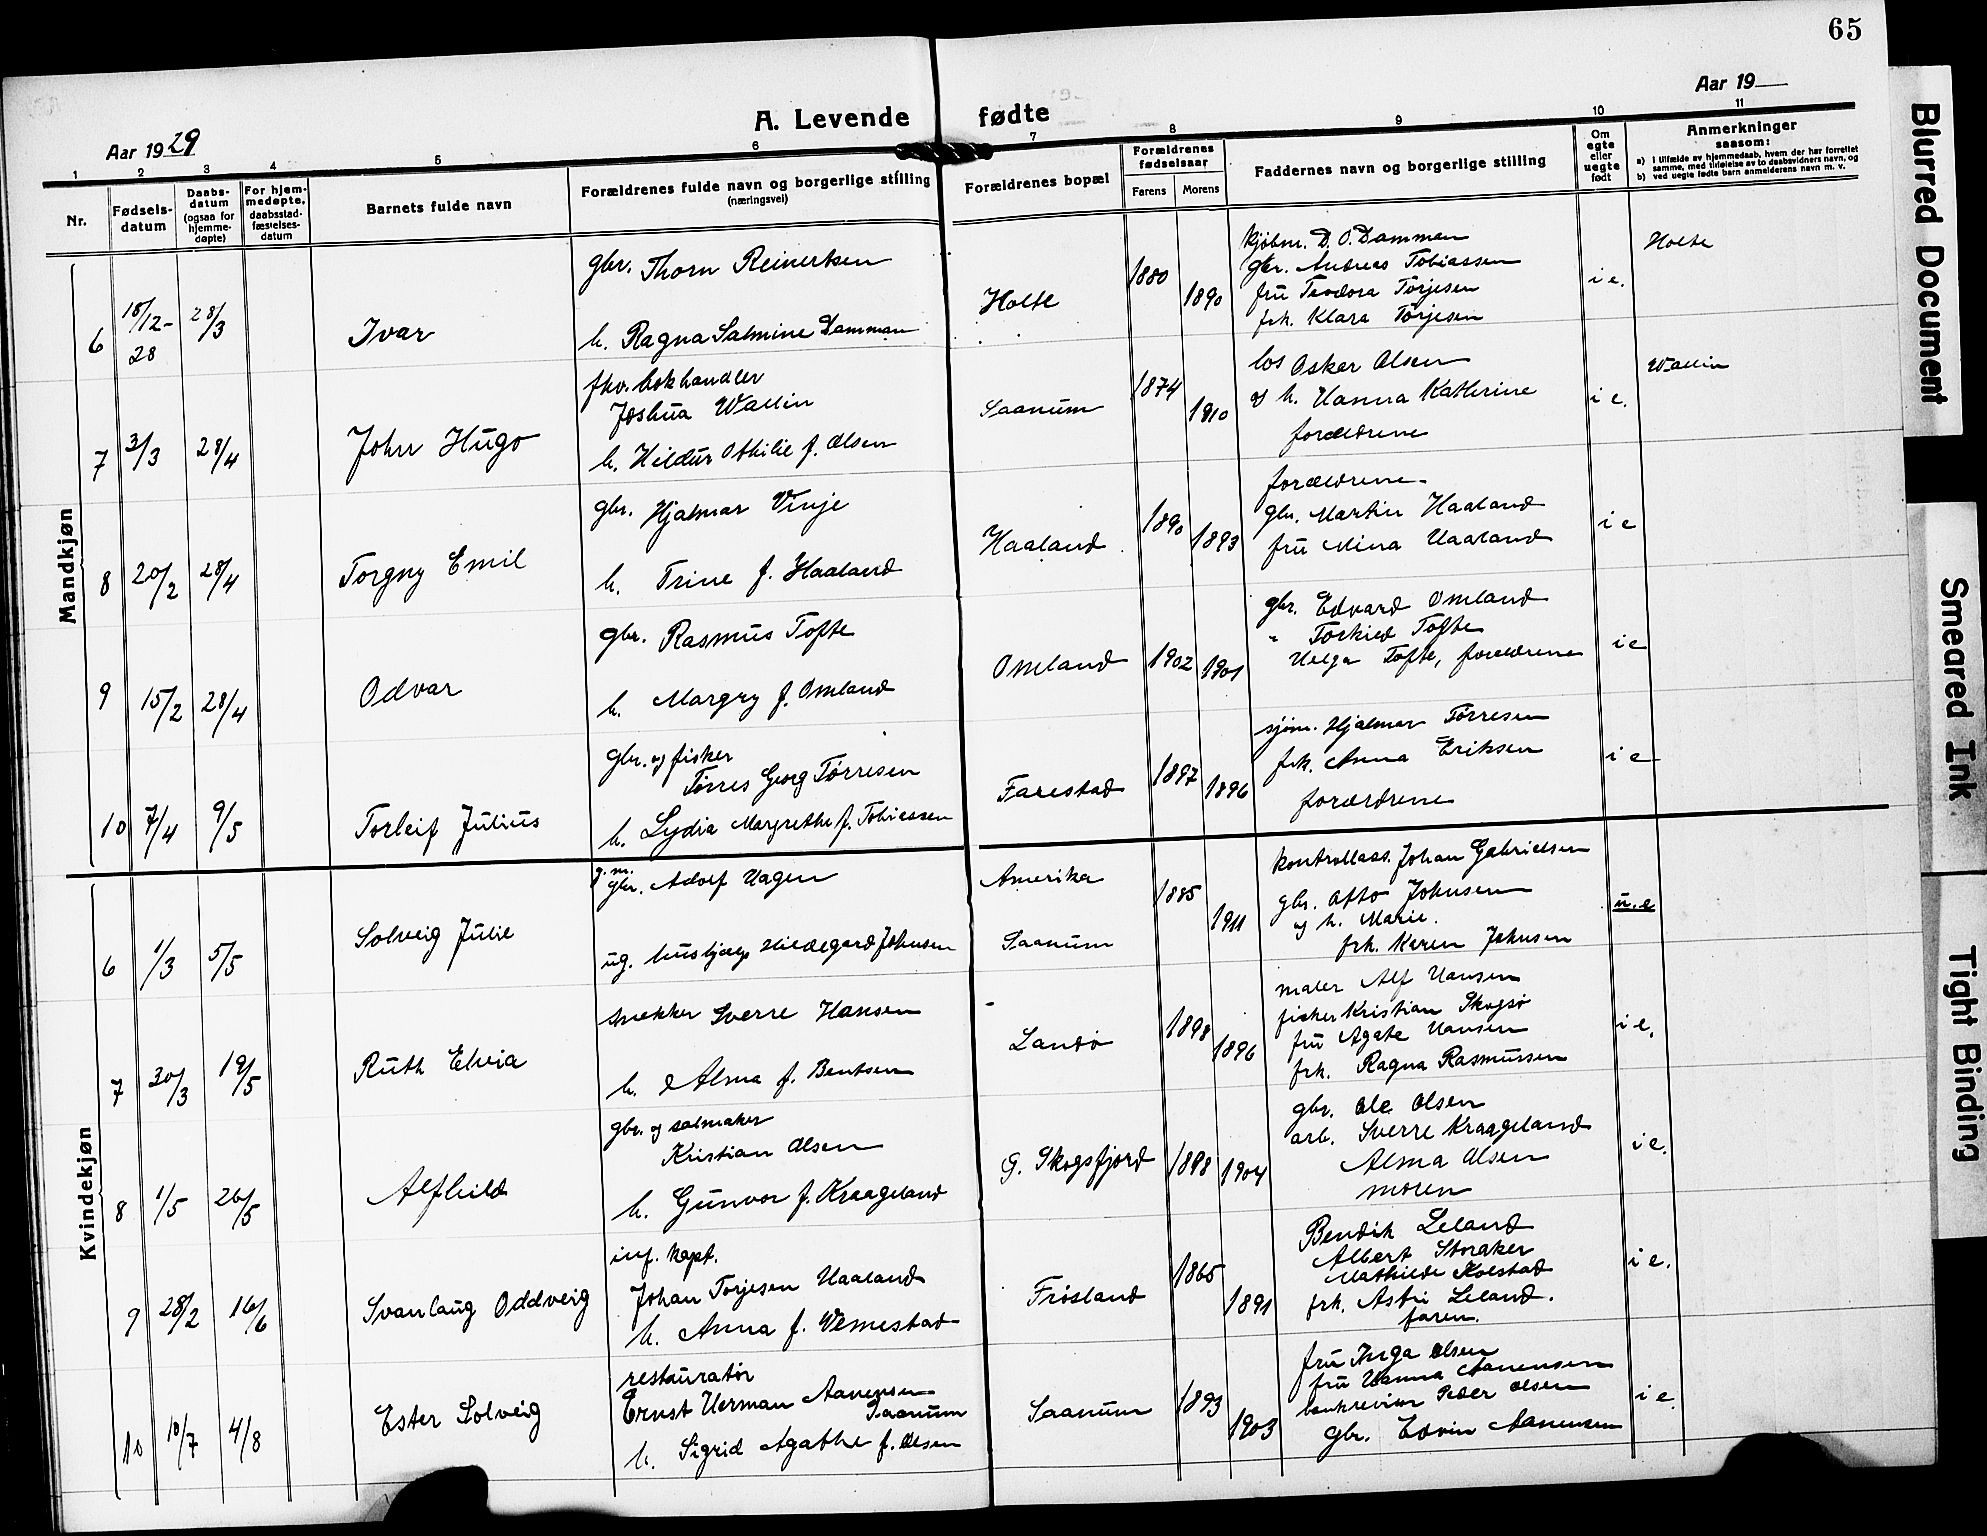 65
Aar 1929
A. Levende fødte
Aar 19
1 2 3 4 5 6 7 8 9 10 11
Nr.
Fødsels-
datum
Daabs-
datum
(ogsaa for
hjemme-
døpte)
For hjem-
medøpte,
daabsstad-
fæstelses-
datum
Barnets fulde navn
Forældrenes fulde navn og borgerlige stilling
(næringsvei)
Forældrenes bopæl
Forældrenes
fødselsaar
Farens Morens
Faddernes navn og borgerlige stilling
Om
egte
eller
uegte
født
Anmerkninger
saasom:
a) i tilfælde av hjemmedaab, hvem der har forrettet
samme, med tilføielse av to daabsvidners navn, og
b) ved uegte fødte barn anmelderens navn m. v.
Mandkjøn
6 18/12-28 28/3 Ivar
gbr. Thorn Reinertsen
h. Ragna Salmine Damman
Holte 1880 1890
kjøbm. D. O. Damman
gbr. Andreas Tobiassen
fru Teodora Torjesen
frk. Klara Torjesen
i e.
Holte
7 3/3 28/4 John Hugo
fhv. bokhandler
Joshua Wallin
h. Hildur Othilie f. Olsen
Saanum 1874 1910
los Oskar Olsen
og h. Hanna Kathrine
forældrene
i e.
Wallin
8 20/2 28/4 Torgny Emil
gbr. Hjalmar Vinje
h. Trine f. Haaland
Haaland 1890 1893
forældrene.
gbr. Martin Haaland
fru Mina Haaland
i e
9 15/2 28/4 Odvar
gbr. Rasmus Tofte
h. Margry f. Omland
Omland 1902 1901
gbr. Edvard Omland
" Torkied Tofte
Helga Tofte, forældrene
i e
10 7/4 9/5 Torleif Julius
gbr. og fisker
Tørres Georg Tørresen
h. Lydia Margrethe f. Tobiassen
Farestad 1897 1896
sjøm. Hjalmar Tørresen
frk. Anna Eriksen
forældrene
i e
Kvindekjøn
6 1/3 5/5 Solveig Julie
g. m.
gbr. Adolf Hagen
ug. hushjælp Hildegard Johnsen
Amerika
Saanum
1885 1911
kontrollass. Johan Gabrielsen
gbr. Otto Johnsen
og h. Marie.
frk. Karen Johnsen
u. e
7 30/3 19/5 Ruth Elvia
snekker Sverre Hansen
h. Alma f. Bentsen
Landø 1898 1896
maler Alf Hansen
fisker Kristian Skogsø
fru Agate Hansen
frk. Ragna Rasmussen
i e.
8 1/5 26/5 Alfhild
gbr. og salmaker
Kristian Olsen
h. Gunvor f. Kraageland
G. Skogsfjord 1898 1904
gbr. Ole Olsen
arb. Sverre Kraageland
Alma Olsen
moren
i e.
9 28/2 16/6 Svanlaug Oddveig
inf. kapt.
Johan Torjesen Haaland
h. Anna f. Vemestad
Frøsland 1865 1891
Bendik Leland
Albert Storaker
Mathilde Kolstad
frk. Astri Leland.
faren.
i e.
10 10/7 4/8 Ester Solveig
restauratør
Ernst Herman Aanensen
Saanum
h. Sigrid Agathe f. Olsen
Saanum 1893 1903
fru Inga Olsen
fru Hanna Aanensen
bankrevisor Peder Olsen
gbr. Edvin Aanensen
i e.
Blurred Document
Smeared Ink
Tight Binding